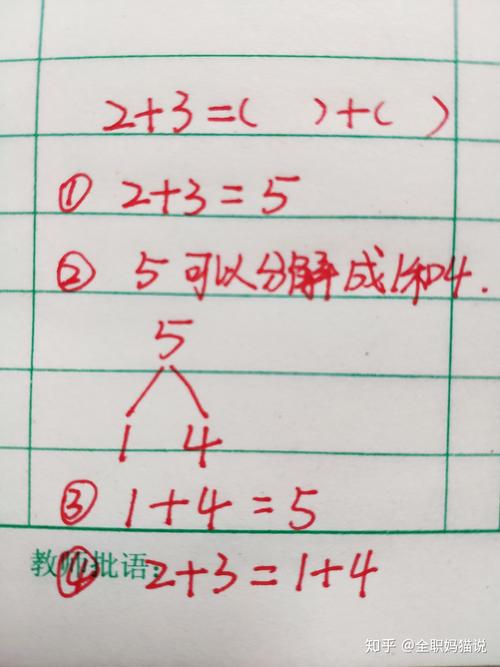 2+3=( )+( )
① 2+3=5
② 5可以分解成1和4.
5
1 4
③ 1+4=5
教师批语:
④ 2+3=1+4
知乎 @全职妈猫说